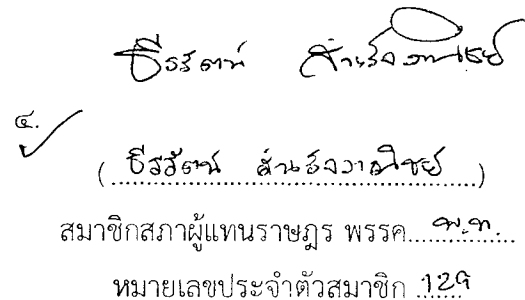 ธีรรัตน์ สำเร็จวาณิชย์
๔.
( ธีรรัตน์ สำเร็จวาณิชย์ )
สมาชิกสภาผู้แทนราษฎร พรรค พ.ท.
หมายเลขประจำตัวสมาชิก 129